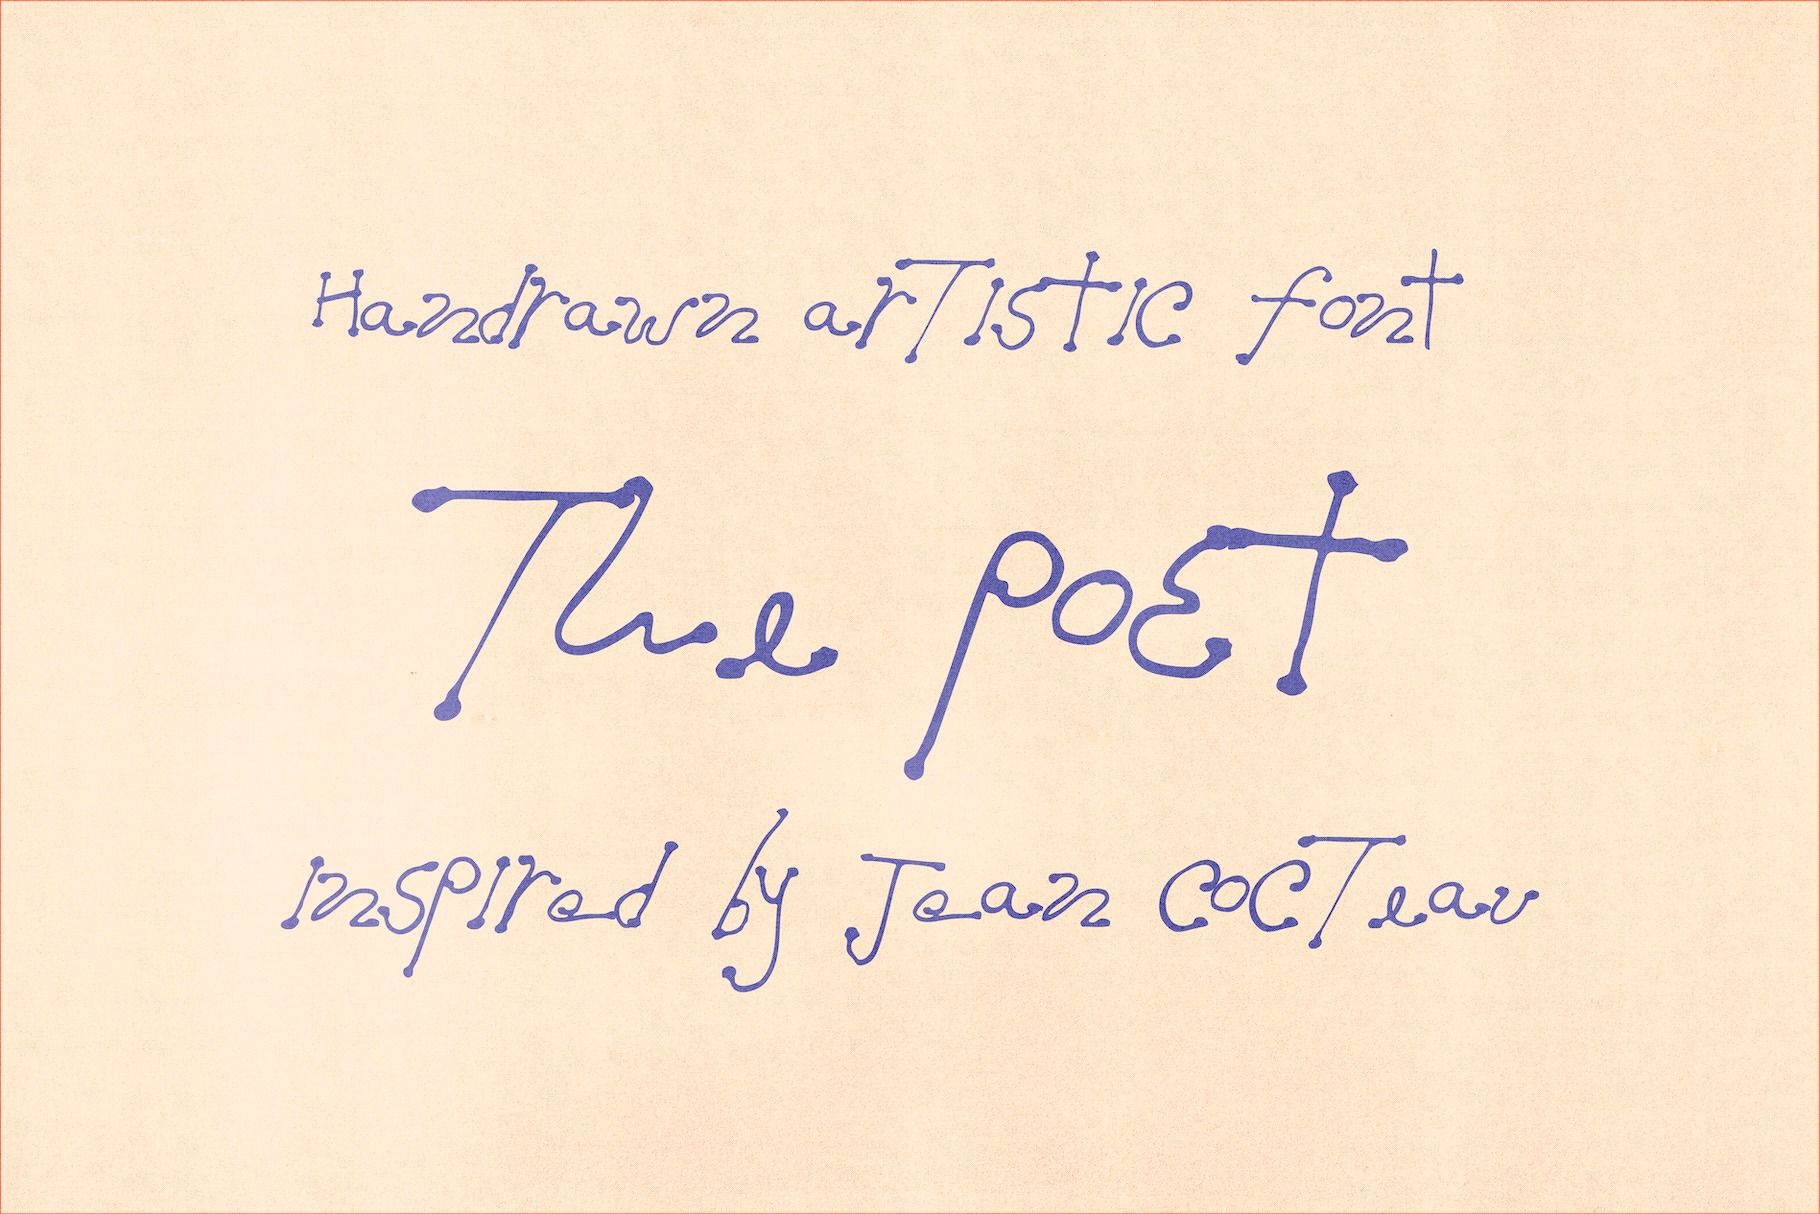 Handrawn arTistic font
The poEt
inspired by Jean CocTeau